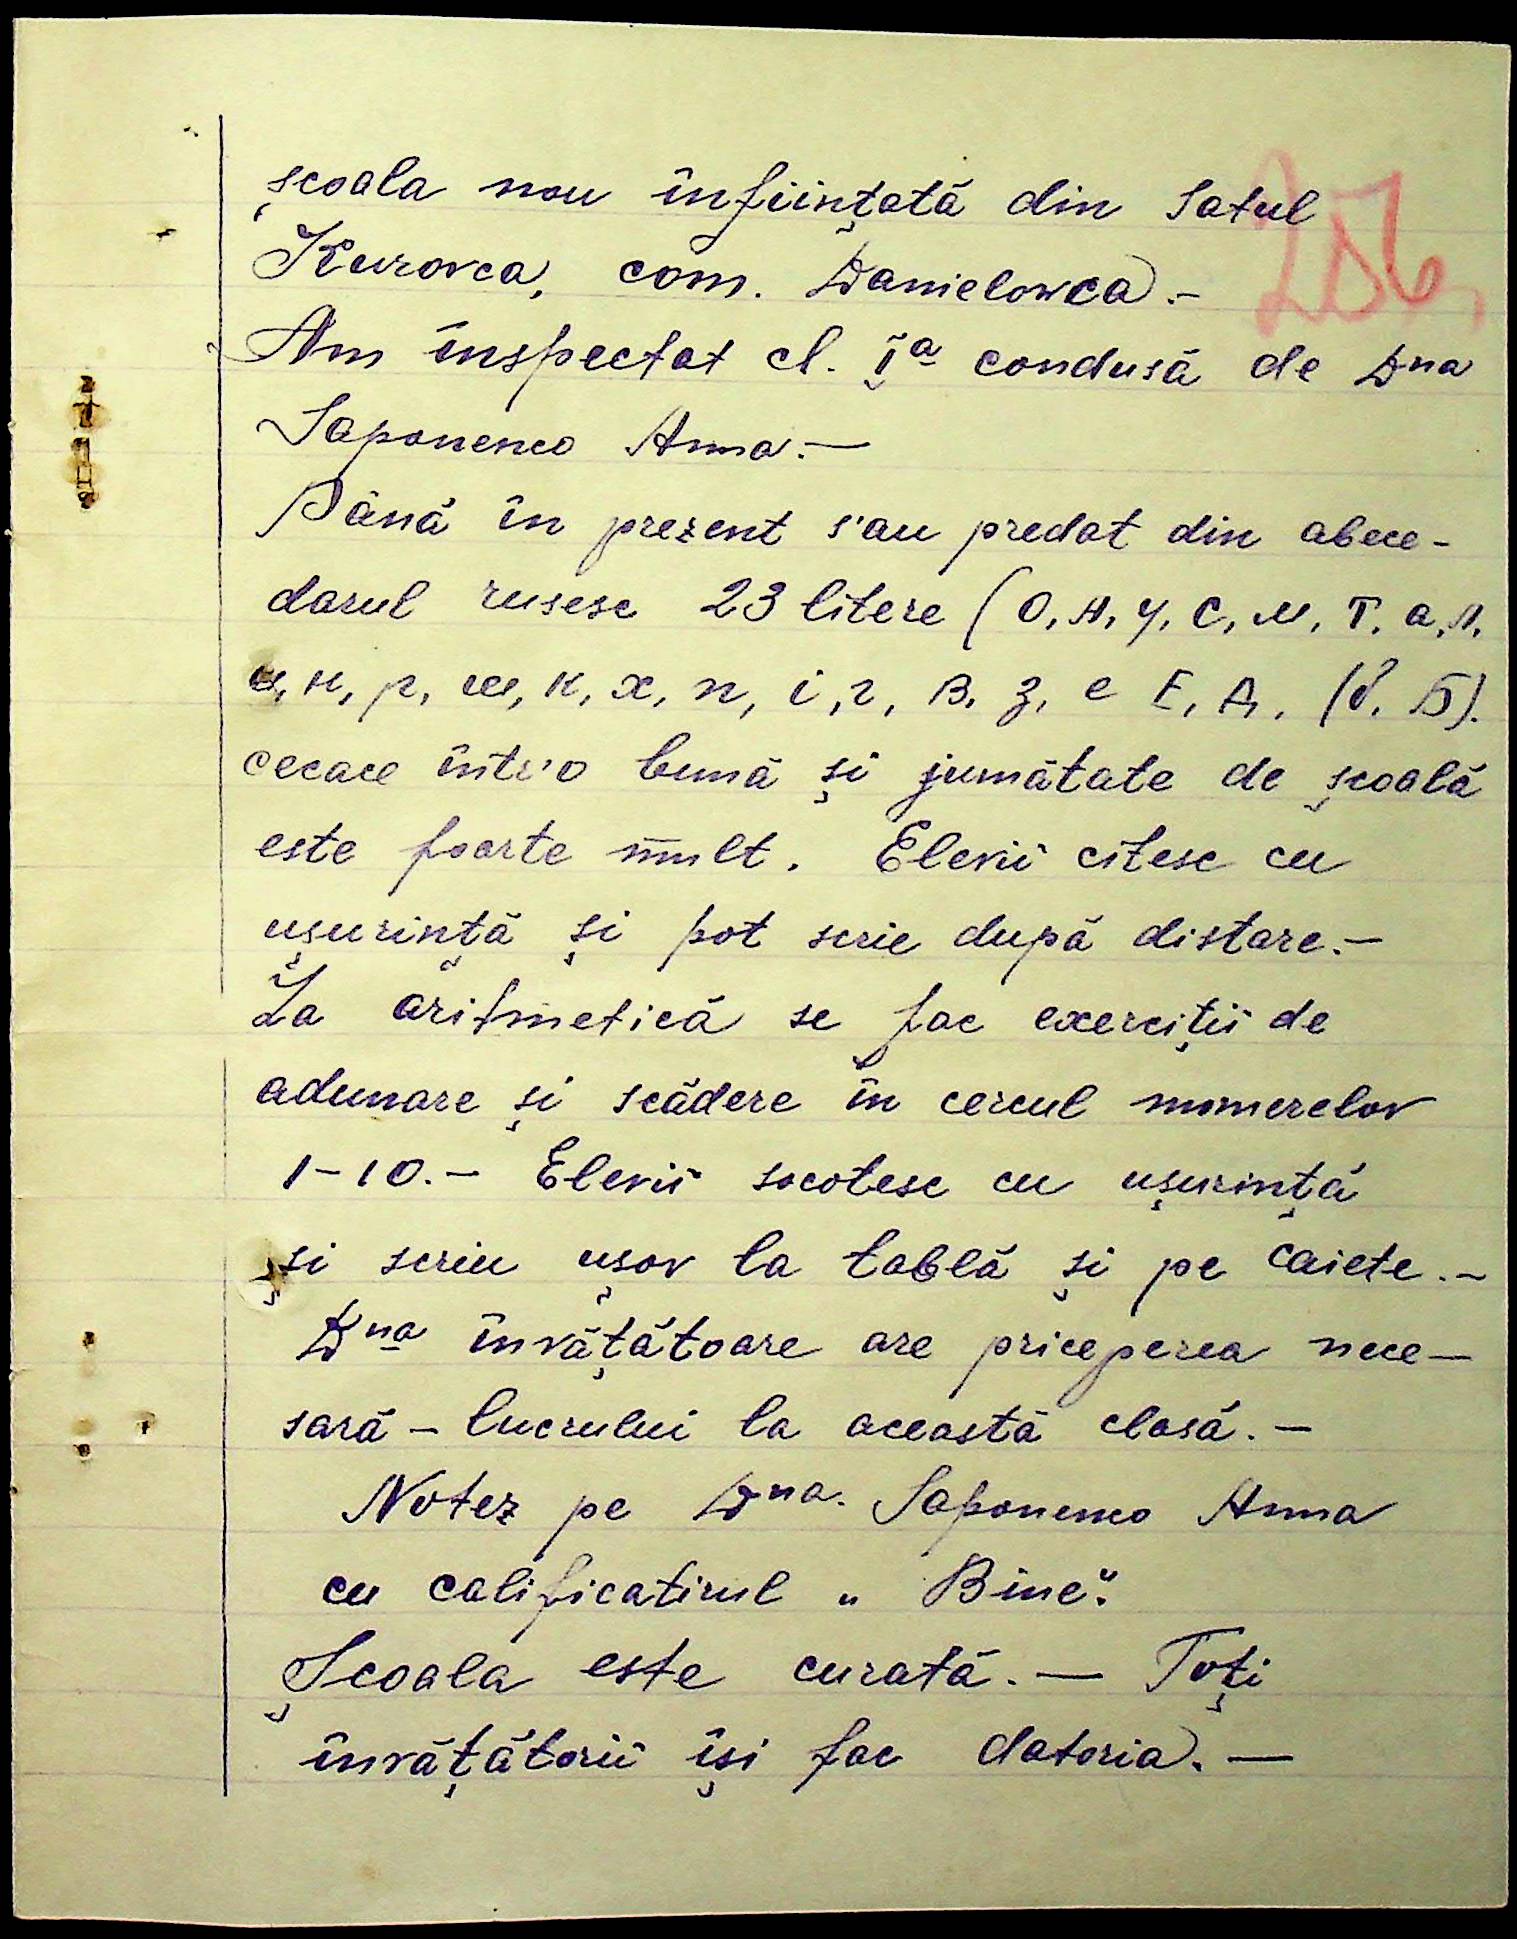 școala nou înființată din satul
256,
Kurovca, com. Danielowca.-
Am inspectat cl. Iª condusă de Dna
Saponenco Anna.—
Până în prezent s'au predat din abece-
darul rusesc 23 litere (О, А, у, с, м, Т, а, л,
и, н, р, ш, к, х, п, і, г, В, з, е Е, Д, (б, Б).
ceeace într'o lună și jumătate de școală
este foarte mult. Elevii citesc cu
ușurință și pot scrie după distare.-
La aritmetică se fac exerciții de
adunare și scădere în cercul numerelor
1-10.- Elevii socotesc cu ușurință
și scriu ușor la tablă și pe caiete.-
Dna învățătoare are priceperea nece-
sară - lucrului la această clasă.-
Notez pe Dna. Saponenco Anna
cu calificativul „Bine".
Școala este curată.— Toți
învățătorii își fac datoria.—